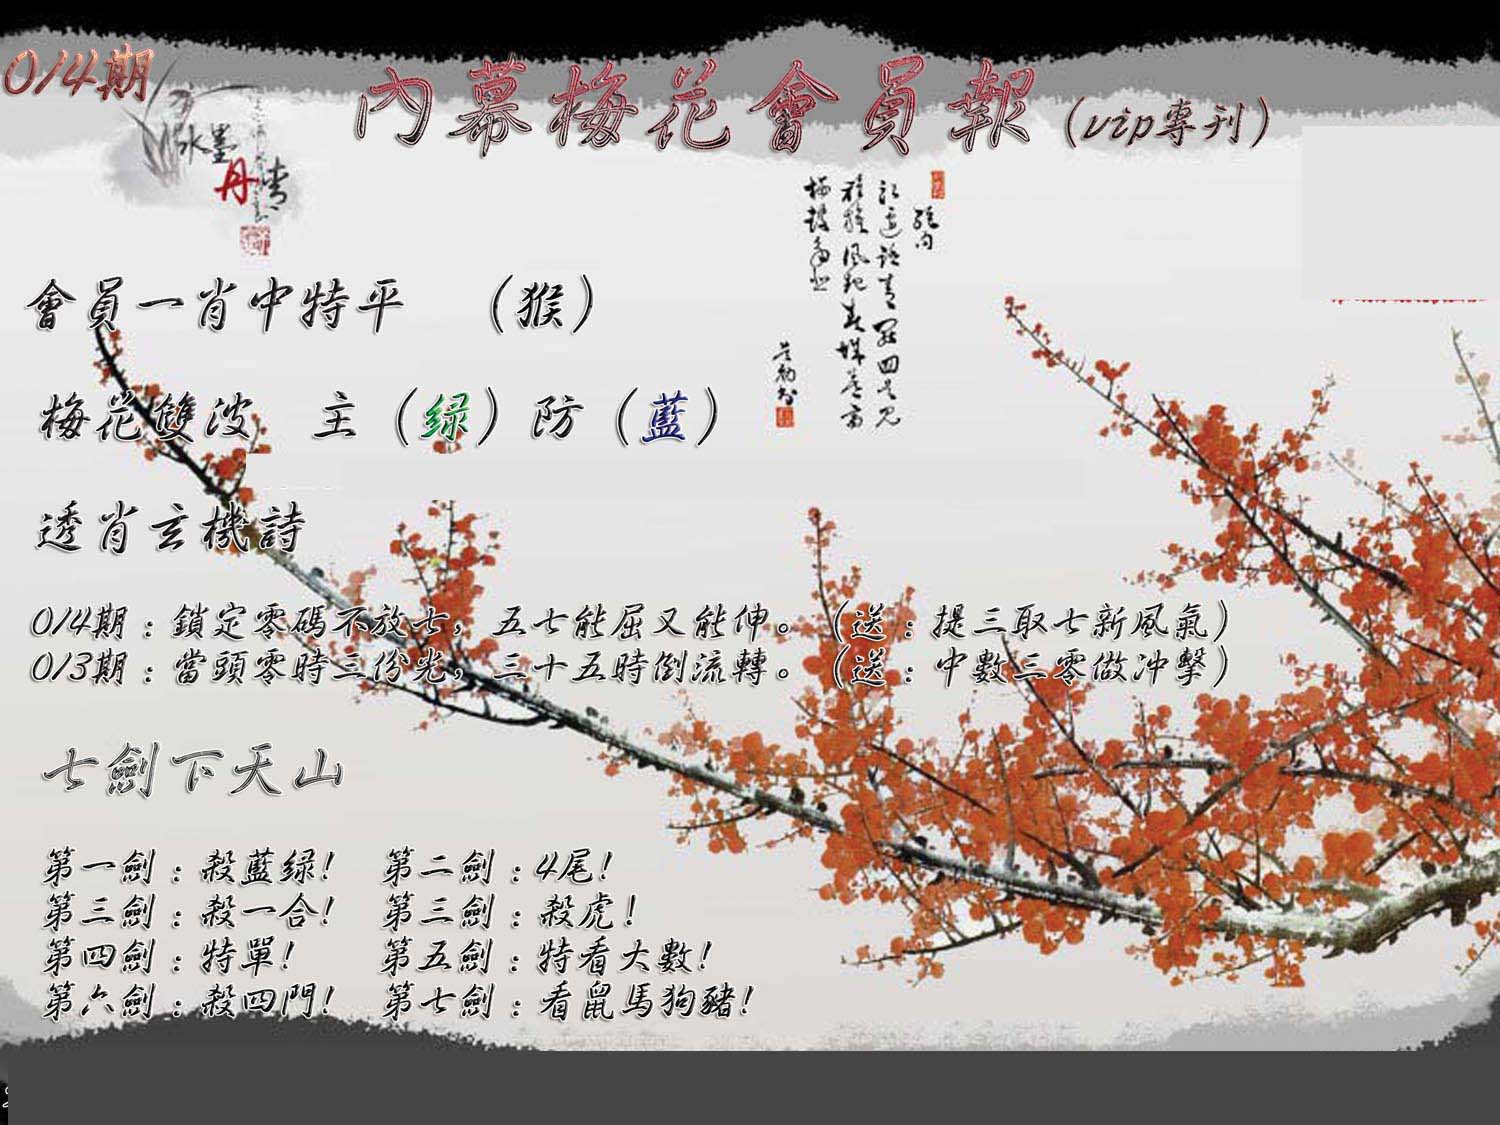 014期
內幕梅花會員報(vip專刊)
水墨
丹青
會員一肖中特平 （猴）
梅花雙波 主（绿）防（藍）
透肖玄機詩
014期：鎖定零碼不放七，五七能屈又能伸。（送：提三取七新風氣）
013期：當頭零時三份光，三十五時倒流轉。（送：中數三零做冲擊）
七劍下天山
第一劍：殺藍绿！ 第二劍：4尾！
第三劍：殺一合！ 第三劍：殺虎！
第四劍：特單！ 第五劍：特看大數！
第六劍：殺四門！ 第七劍：看鼠馬狗豬！